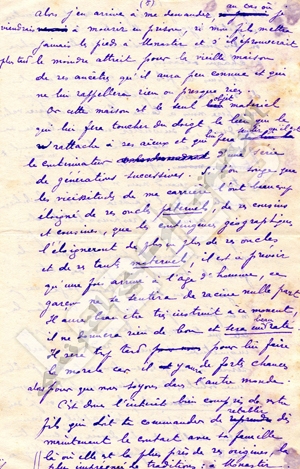 (8)
Alors j'en arrive à me demander au cas où je
viendrais à mourir en prison, si mon fils mettra
jamais le pied à Monastir et s'il éprouverait
plus tard le moindre attrait pour la vieille maison
de ses ancêtres qu'il aura peu connue et qui
ne lui rappellera rien ou presque rien.
Or cette maison est le seul objet matériel
qui lui fera toucher du doigt le lien qui le
rattache à ses aïeux et qui fera sentir qu'il est
le continuateur d'une série
de générations successives. Si l'on songe que
les vicissitudes de ma carrière l'ont beaucoup
éloigné de ses oncles paternels, de ses cousins
et cousines, que les contingences géographiques
l'éloigneront de plus en plus de ses oncles
et de ses tantes maternels, il est à prévoir
qu'une fois arrivé à l'âge d'homme, ce
garçon ne se sentira de racine nulle part.
Il aura beau être très instruit à ce moment,
il ne donnera rien de bon et sera
Il sera trop tard pour lui faire
la morale car il y a de fortes chances
alors pour que nous soyons dans l'autre monde.
C'est donc l'intérêt bien compris de votre
fils qui doit te commander de rétablir dès
maintenant le contact avec sa famille
là où elle est le plus près de ses origines, la
plus imprégnée de traditions, à Monastir